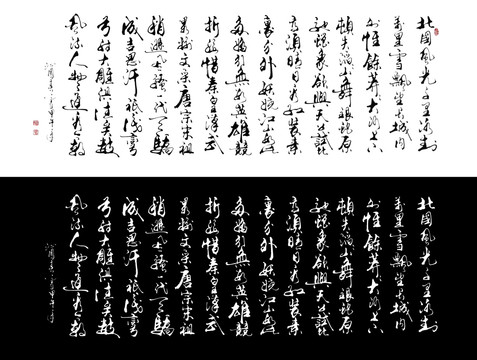 北國風光千里冰封
萬里雪飄望長城內
外惟餘莽莽大河上下
頓失滔滔山舞銀蛇原
馳蠟象欲與天公試比
高須晴日看紅裝素
裹分外妖嬈江山如此
多嬌引無數英雄競
折腰惜秦皇漢武
略輸文采唐宗宋祖
稍遜風騷一代天驕
成吉思汗祇識彎
弓射大雕俱往矣數
風流人物還看今朝
北國風光千里冰封
萬里雪飄望長城內
外惟餘莽莽大河上下
頓失滔滔山舞銀蛇原
馳蠟象欲與天公試比
高須晴日看紅裝素
裹分外妖嬈江山如此
多嬌引無數英雄競
折腰惜秦皇漢武
略輸文采唐宗宋祖
稍遜風騷一代天驕
成吉思汗祇識彎
弓射大雕俱往矣數
風流人物還看今朝